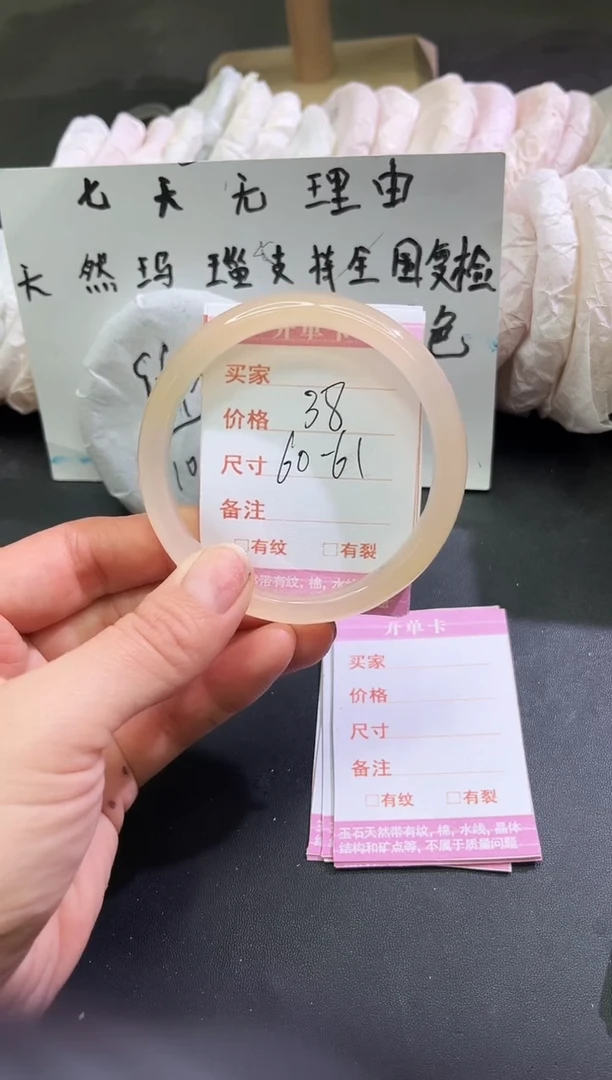 七天无理由
天然玛瑙支持全国复检
色
10
开单卡
买家
价格 38
尺寸 60-61
备注
□有纹 □有裂
带有纹，棉，水
开单卡
买家
价格
尺寸
备注
□有纹 □有裂
玉石天然带有纹，棉，水线，晶体
结构和矿点等，不属于质量问题